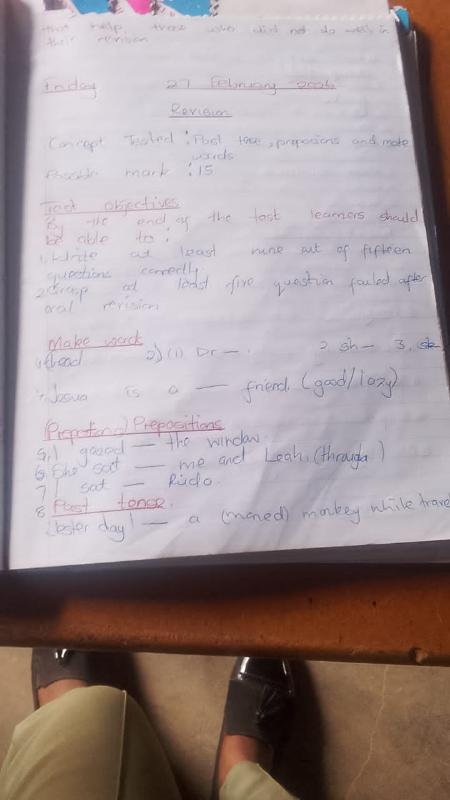 that help those who did not do well in
their revision
Friday 27 February 2026
Revision
Concept Tested : Past tense, preposions and make
words
Possible mark : 15
Test objectives
By the end of the test learners should
be able to :
1. Write at least nine out of fifteen
questions correctly
2. Grasp at least five question failed after
oral revision
Make word
1) Read 2) (i) Dr — . 2 sh — 3.
4. Jesus is a — friend. (good/lazy)
Prepositions
5. I gazed — the window.
6. She sat — me and Leah. (through)
7 I sat — Rudo.
8 Past tense.
Yester day I — a (moned) monkey while trave